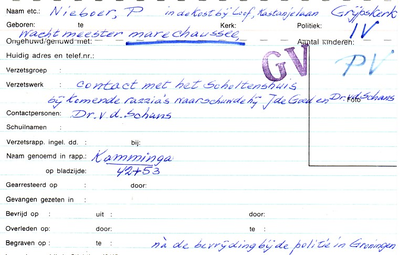 Naam etc.: Nieboer, P in de kost bij Lcuf, Kastanjelaan Grijpskerk
Geboren: te Kerk: Politiek: IV
Wachtmeester marechaussee
Ongehuwd/gehuwd met: Aantal kinderen:
Huidig adres en telef.nr.: GV PV
Verzetsgroep :
Verzetswerk : contact met het Scholtenshuis
bij komende razzia's waarschuwde hij J de Goed en Dr v.d. Schans
Foto
Contactpersonen: Dr. v.d. Schans
Schuilnamen :
Verzetsrapp. ingel. dd. : bij:
Naam genoemd in rapp.: Kamminga
op bladzijde: 42+53
Gearresteerd op : door:
Gevangen gezeten in :
Bevrijd op : uit : door:
Overleden op: door: te :
Begraven op : te : nà de bevrijding bij de politie in Groningen